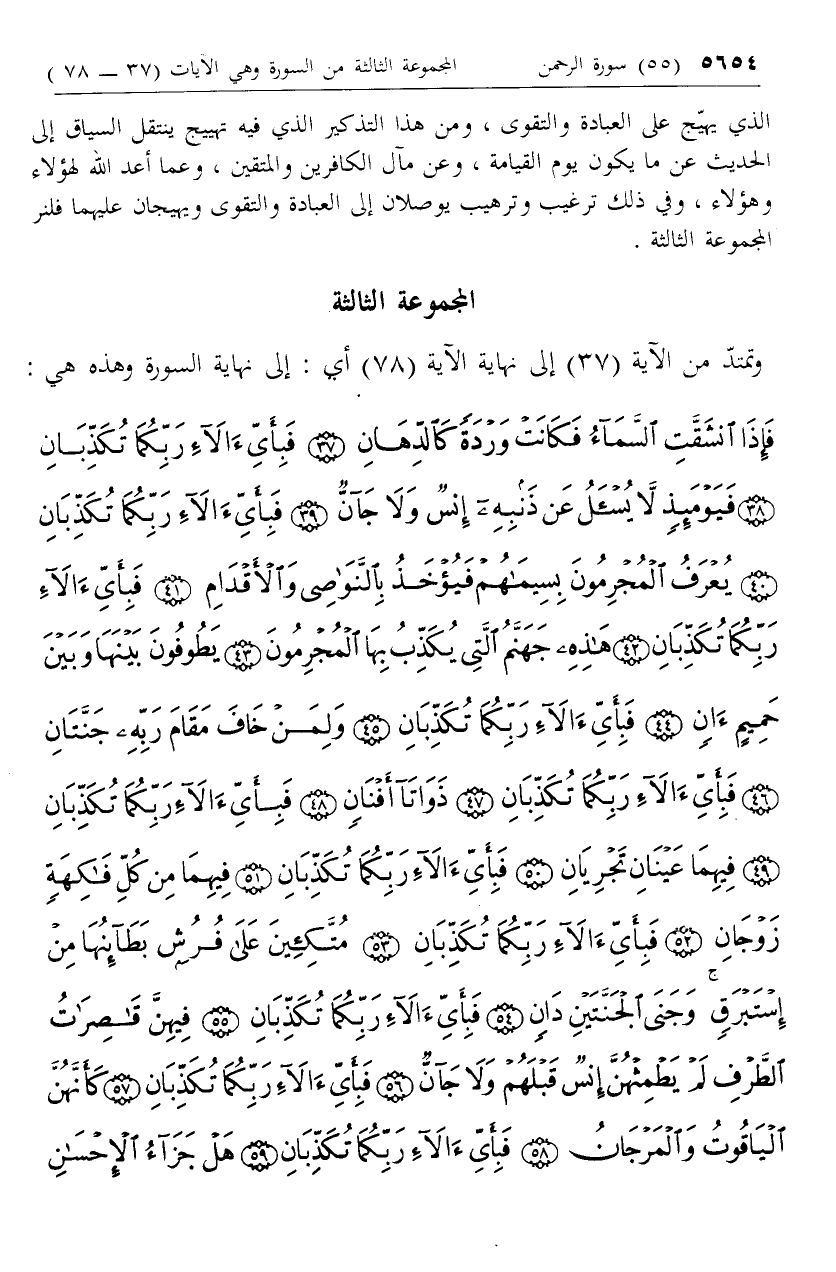 ٥٦٥٤ (٥٥) سورة الرحمن المجموعة الثالثة من السورة وهي الآيات (٣٧ ــ ٧٨ )
الذي يهيّج على العبادة والتقوى ، ومن هذا التذكير الذي فيه تهييج ينتقل السياق إلى
الحديث عن ما يكون يوم القيامة ، وعن مآل الكافرين والمتقين ، وعما أعد الله لهؤلاء
وهؤلاء ، وفي ذلك ترغيب وترهيب يوصلان إلى العبادة والتقوى ويهيجان عليهما فلنر
المجموعة الثالثة .
المجموعة الثالثة
وتمتدّ من الآية (٣٧) إلى نهاية الآية (٧٨) أي : إلى نهاية السورة وهذه هي :
فَإِذَا ٱنشَقَّتِ ٱلسَّمَآءُ فَكَانَتْ وَرْدَةً كَٱلدِّهَانِ ﴿٣٧﴾ فَبِأَيِّ ءَالَآءِ رَبِّكُمَا تُكَذِّبَانِ
﴿٣٨﴾ فَيَوْمَئِذٍ لَّا يُسْـَٔلُ عَن ذَنۢبِهِۦٓ إِنسٌ وَلَا جَآنٌّ ﴿٣٩﴾ فَبِأَيِّ ءَالَآءِ رَبِّكُمَا تُكَذِّبَانِ
﴿٤٠﴾ يُعْرَفُ ٱلْمُجْرِمُونَ بِسِيمَٰهُمْ فَيُؤْخَذُ بِٱلنَّوَٰصِى وَٱلْأَقْدَامِ ﴿٤١﴾ فَبِأَيِّ ءَالَآءِ
رَبِّكُمَا تُكَذِّبَانِ ﴿٤٢﴾ هَٰذِهِۦ جَهَنَّمُ ٱلَّتِى يُكَذِّبُ بِهَا ٱلْمُجْرِمُونَ ﴿٤٣﴾ يَطُوفُونَ بَيْنَهَا وَبَيْنَ
حَمِيمٍ ءَانٍ ﴿٤٤﴾ فَبِأَيِّ ءَالَآءِ رَبِّكُمَا تُكَذِّبَانِ ﴿٤٥﴾ وَلِمَنْ خَافَ مَقَامَ رَبِّهِۦ جَنَّتَانِ
﴿٤٦﴾ فَبِأَيِّ ءَالَآءِ رَبِّكُمَا تُكَذِّبَانِ ﴿٤٧﴾ ذَوَاتَآ أَفْنَانٍ ﴿٤٨﴾ فَبِأَيِّ ءَالَآءِ رَبِّكُمَا تُكَذِّبَانِ
﴿٤٩﴾ فِيهِمَا عَيْنَانِ تَجْرِيَانِ ﴿٥٠﴾ فَبِأَيِّ ءَالَآءِ رَبِّكُمَا تُكَذِّبَانِ ﴿٥١﴾ فِيهِمَا مِن كُلِّ فَٰكِهَةٍ
زَوْجَانِ ﴿٥٢﴾ فَبِأَيِّ ءَالَآءِ رَبِّكُمَا تُكَذِّبَانِ ﴿٥٣﴾ مُتَّكِـِٔينَ عَلَىٰ فُرُشٍۭ بَطَآئِنُهَا مِنْ
إِسْتَبْرَقٍۚ وَجَنَى ٱلْجَنَّتَيْنِ دَانٍ ﴿٥٤﴾ فَبِأَيِّ ءَالَآءِ رَبِّكُمَا تُكَذِّبَانِ ﴿٥٥﴾ فِيهِنَّ قَٰصِرَٰتُ
ٱلطَّرْفِ لَمْ يَطْمِثْهُنَّ إِنسٌ قَبْلَهُمْ وَلَا جَآنٌّ ﴿٥٦﴾ فَبِأَيِّ ءَالَآءِ رَبِّكُمَا تُكَذِّبَانِ ﴿٥٧﴾ كَأَنَّهُنَّ
ٱلْيَاقُوتُ وَٱلْمَرْجَانُ ﴿٥٨﴾ فَبِأَيِّ ءَالَآءِ رَبِّكُمَا تُكَذِّبَانِ ﴿٥٩﴾ هَلْ جَزَآءُ ٱلْإِحْسَٰنِ